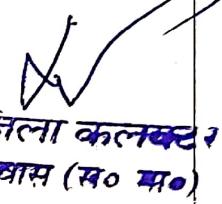 जिला कलक्टर
वास (म० प्र०)